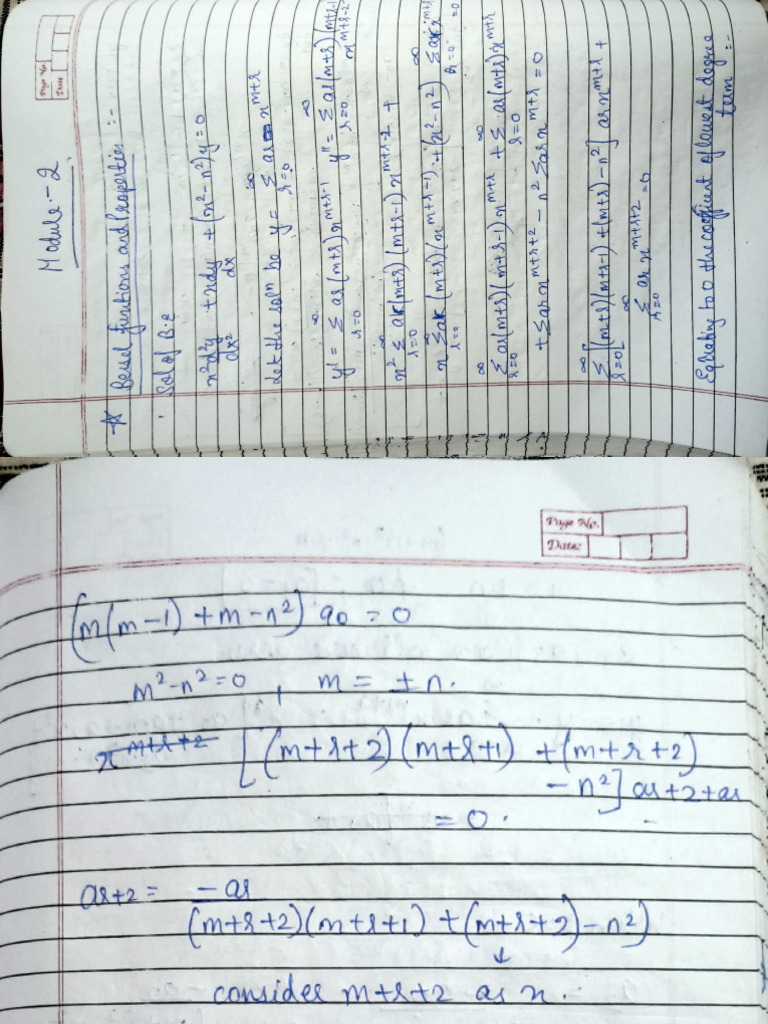 Page No.
Date:
Module - 2
☆ Bessel functions and Properties :-
Sol of B.E
x²d²y/dx² + xdy/dx + (x²-n²)y = 0
Let the solⁿ be y = ∞Σr=0 ar x^m+r
y' = ∞Σr=0 ar(m+r)x^m+r-1 y'' = ∞Σr=0 ar(m+r)(m+r-1) x^m+r-2
x² ∞Σr=0 ar(m+r)(m+r-1)x^m+r-2 +
x ∞Σr=0 ar(m+r)(x^m+r-1) + (x²-n²) ∞Σr=0 ar x^m+r = 0
∞Σr=0 ar(m+r)(m+r-1)x^m+r + ∞Σr=0 ar(m+r)x^m+r
+ Σar x^m+r+2 - n² Σar x^m+r = 0
∞Σr=0 [(m+r)(m+r-1) + (m+r) - n²] ar x^m+r +
∞Σr=0 ar x^m+r+2 = 0
Equating to 0 the coefficient of lowest degree
term :-
Page No.
Date:
(m(m-1) + m-n²) a0 = 0
m²-n² = 0 , m = ±n.
x^m+r+2 [(m+r+2)(m+r+1) + (m+r+2)
- n²] ar+2 + ar
= 0.
ar+2 = -ar
(m+r+2)(m+r+1) + (m+r+2) - n²)
↓
consider m+r+2 as x.